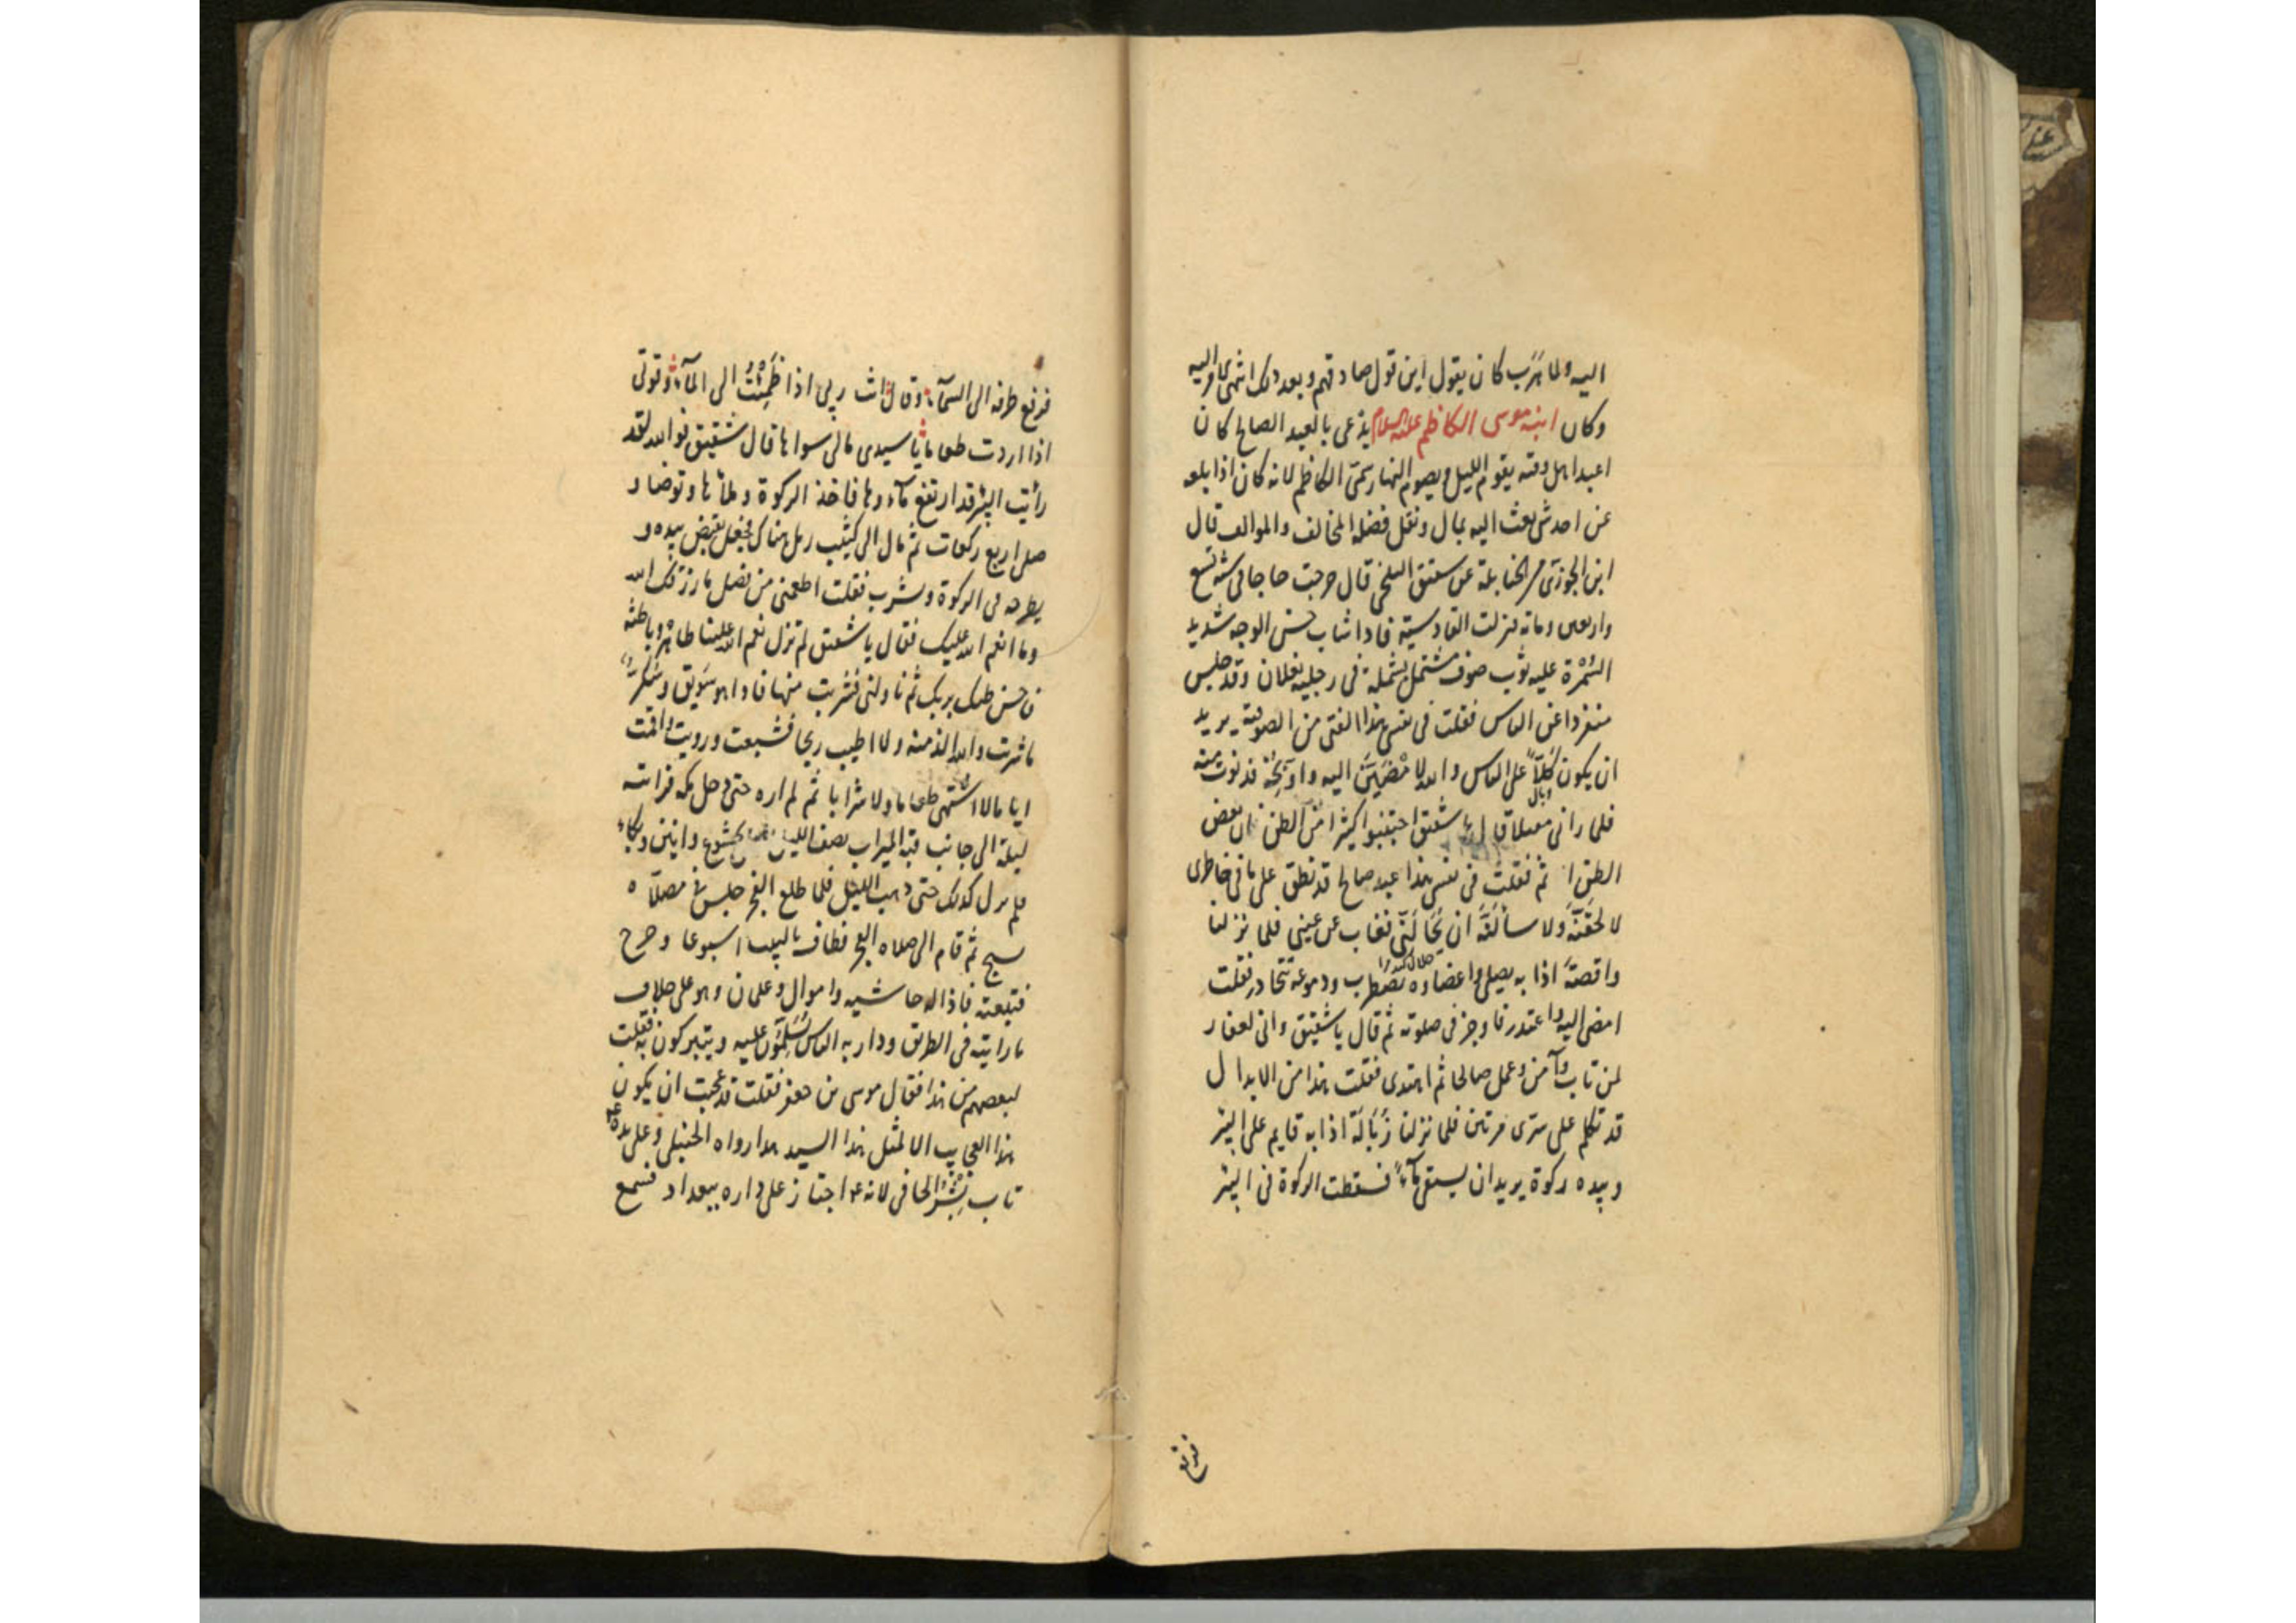 اليه ولما هرب كان يقول اين قول صادقهم وبعد ذلك انتهى الامر اليه
وكان ابنه موسى الكاظم عليه السلام يدعى بالعبد الصالح كان
اعبد اهل وقته يقوم الليل ويصوم النهار سمى الكاظم لانه كان اذا بلغه
عن احد شئ بعث اليه بمال ونقل فضله المخالف والموالف قال
ابن الجوزى من الحنابلة عن شقيق البلخى قال خرجت حاجا فى سنة تسع
واربعين ومائة فنزلت القادسية فاذا شاب حسن الوجه شديد
السُّمْرة عليه ثوب صوف مشتمل بشملة فى رجليه نعلان وقد جلس
منفردا عن الناس فقلت فى نفسى هذا الفتى من الصوفية يريد
ان يكون كَلّاً على الناس والله لامْضِيَنَّ اليه واوبخه فدنوت منه
فلما رانى مقبلا قال يا شقيق اجتنبوا كثيرا من الظن ان بعض
الظن اثم فقلت فى نفسى هذا عبد صالح قد نطق على ما فى خاطرى
لالحقنّه ولاسألنّه ان يحالّنى فغاب عن عينى فلما نزلنا
واقصة اذا به يصلى واعضاؤه تضطرب ودموعه تتحادر فقلت
امضى اليه واعتذر فاوجز فى صلوته ثم قال يا شقيق وانى لغفار
لمن تاب وآمن وعمل صالحا ثم اهتدى فقلت هذا من الابدال
قد تكلم على سرى مرتين فلما نزلنا زُبَالَة اذا به قايم على البئر
وبيده ركوة يريد ان يستقى مآءً فسقطت الركوة فى البئر
فرفع
فرفع طرفه الى السمآء وقال انت ربى اذا ظَمِئْتُ الى المآء وقوتى
اذا اردت طعاما يا سيدى مالى سواها قال شقيق فوالله لقد
رأيت البئر قد ارتفع مآءوها فاخذ الركوة وملأها وتوضا و
صلى اربع ركعات ثم مال الى كثيب رمل هناك فجعل يقبض بيده و
يطرحه فى الركوة ويشرب فقلت اطعمنى من فضل ما رزقك الله
وما انعم الله عليك فقال يا شقيق لم تزل نعم الله علينا ظاهرة وباطنة
فاحسن ظنك بربك ثم ناولنى فشربت منها فاذا هو سَوِيق وسُكَّرٌ
ما شربت والله الذ منه ولا اطيب ريحا فشبعت ورويت واقمت
اياما لا اشتهى طعاما ولا شرابا ثم لم اره حتى دخل مكة فرايته
ليلة الى جانب قبة الميزاب نصف الليل بخشوع وانين وبكاء
فلم يزل كذلك حتى ذهب الليل فلما طلع الفجر جلس فى مصلاه
يسبح ثم قام الى صلاة الفجر فطاف بالبيت اسبوعا وخرج
فتبعته فاذا له حاشية واموال وغلمان وهو على خلاف
ما رايته فى الطريق ودار به الناس يُسَلِّمُون عليه ويتبركون به فقلت
لبعضهم من هذا فقال موسى بن جعفر فقلت قد عجبت ان يكون
هذا العجايب الا لمثل هذا السيد هذا رواه الحنبلى وعلى يده
تاب بِشْرٌ الحافى لانه اجتاز على داره ببغداد فسمع